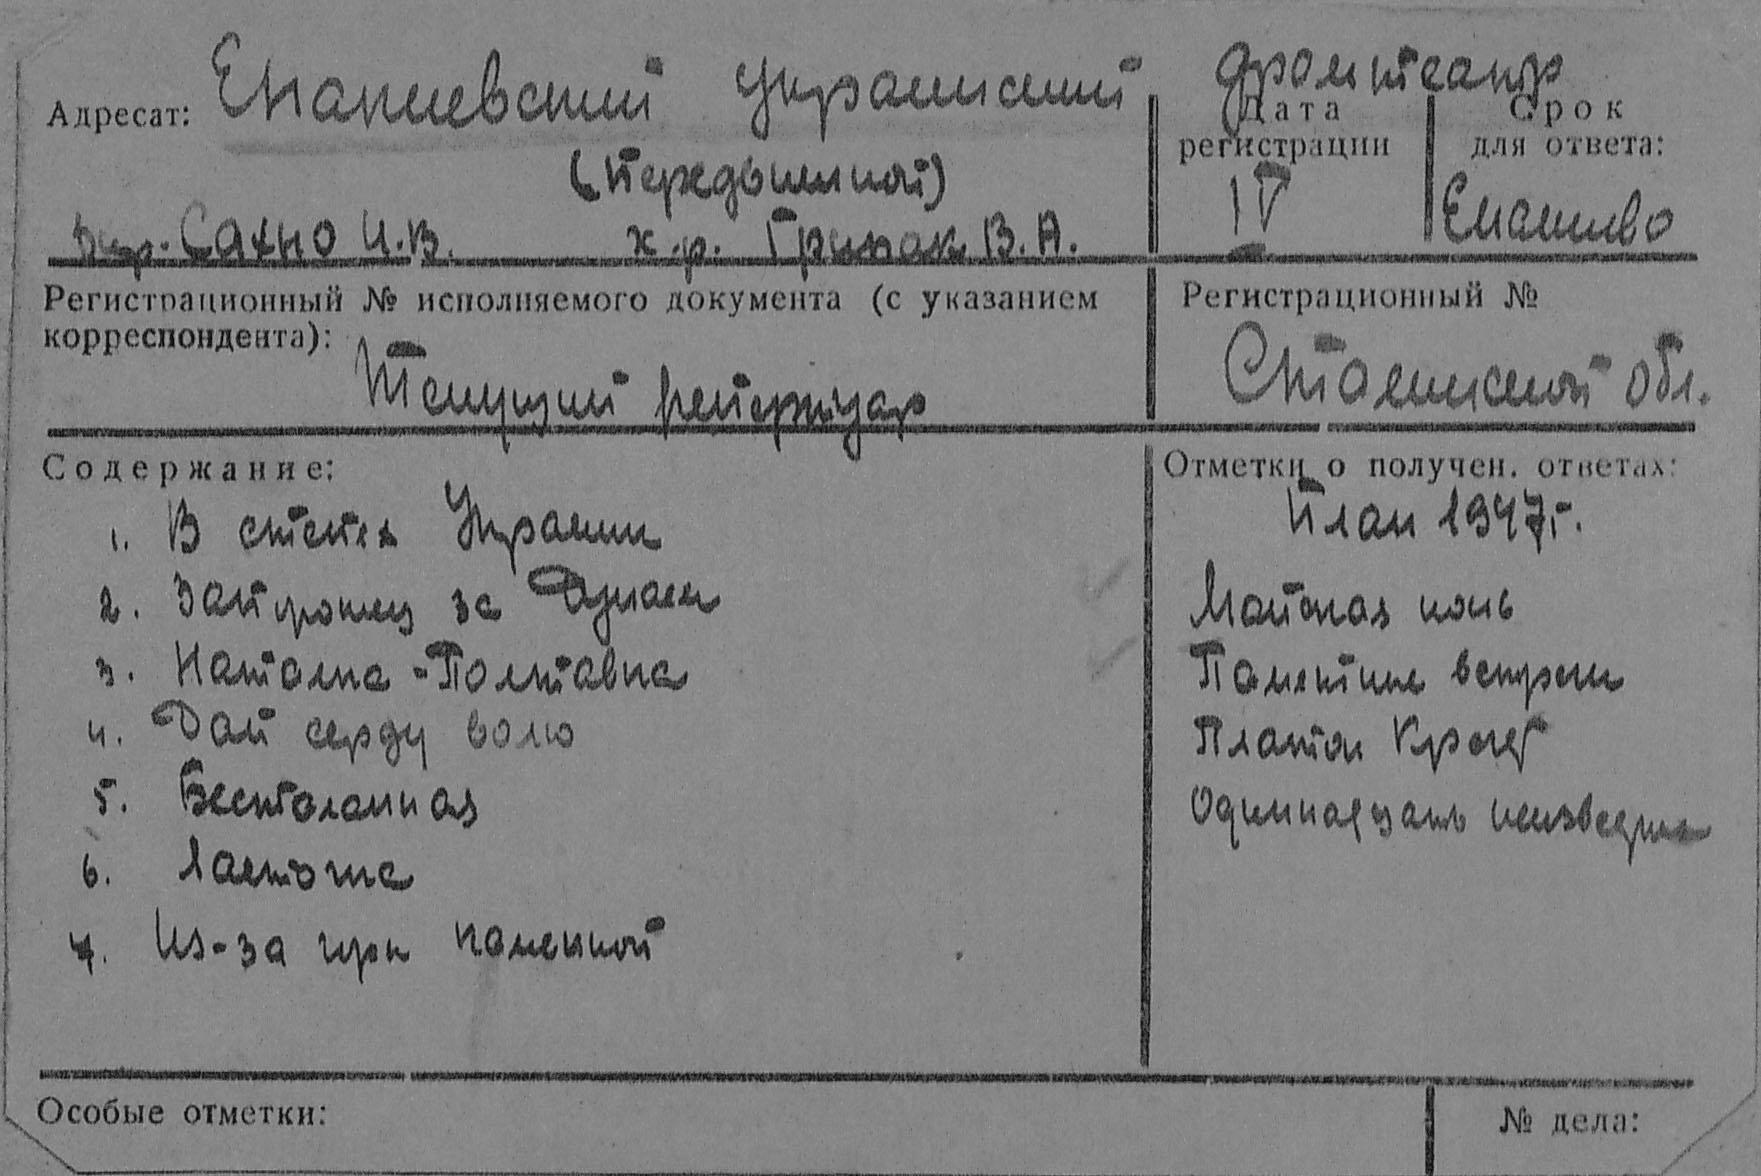 Енакиевский украинский драмтеатр
Адресат:
Дата регистрации
Срок для ответа:
(передвижной)
IV
Енакиево
Дир. Сахно И.В. х.р. Грипак В.А.
Регистрационный № исполняемого документа (с указанием
корреспондента):
Регистрационный №
Текущий репертуар
Сталинской обл.
Содержание:
Отметки о получен. ответах:
План 1947 г.
1. В степях Украины
2. Запорожец за Дунаем
3. Наталка-Полтавка
4. Дай серду волю
5. Бесталанная
6. Ласточка
7. Из-за горы каменной
Майская ночь
Памятные встречи
Платон Кречет
Одиннадцать неизвестных
Особые отметки:
№ дела: